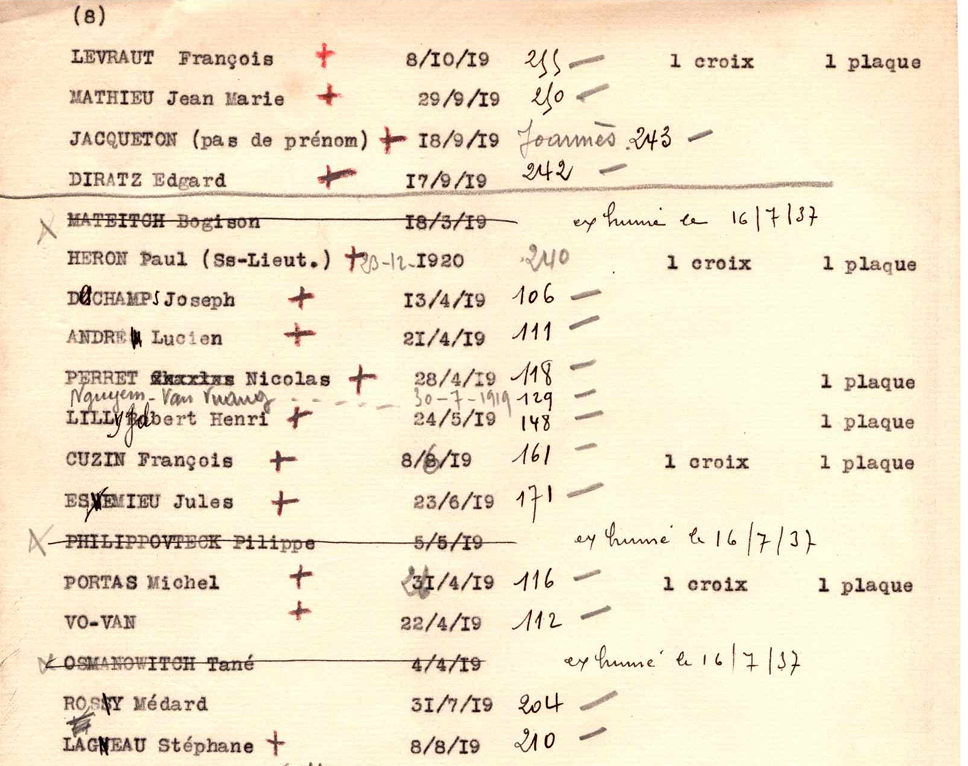 (8)
LEVRAUT François + 8/10/19 255 — 1 croix 1 plaque
MATHIEU Jean Marie + 29/9/19 250 —
JACQUETON (pas de prénom) + 18/9/19 Joannès 243 —
DIRATZ Edgard + 17/9/19 242 —
MATEITCH Bogison 18/3/19 exhumé le 16/7/37
HERON Paul (Ss-Lieut.) + 23-12-1920 240 1 croix 1 plaque
DUCHAMPS Joseph + 13/4/19 106 —
ANDRE Lucien + 21/4/19 111 —
PERRET Nicolas + 28/4/19 118 — 1 plaque
Nguyem-Van 30-7-1919 129 —
LILLY Robert Henri + 24/5/19 148 — 1 plaque
CUZIN François + 8/6/19 161 — 1 croix 1 plaque
ESNEMIEU Jules + 23/6/19 171 —
PHILIPPOVTECK Pilippe 5/5/19 exhumé le 16/7/37
PORTAS Michel + /4/19 116 — 1 croix 1 plaque
VO-VAN + 22/4/19 112 —
OSMANOWITCH Tané 4/4/19 exhumé le 16/7/37
ROSSY Médard 31/7/19 204 —
LAGNEAU Stéphane + 8/8/19 210 —